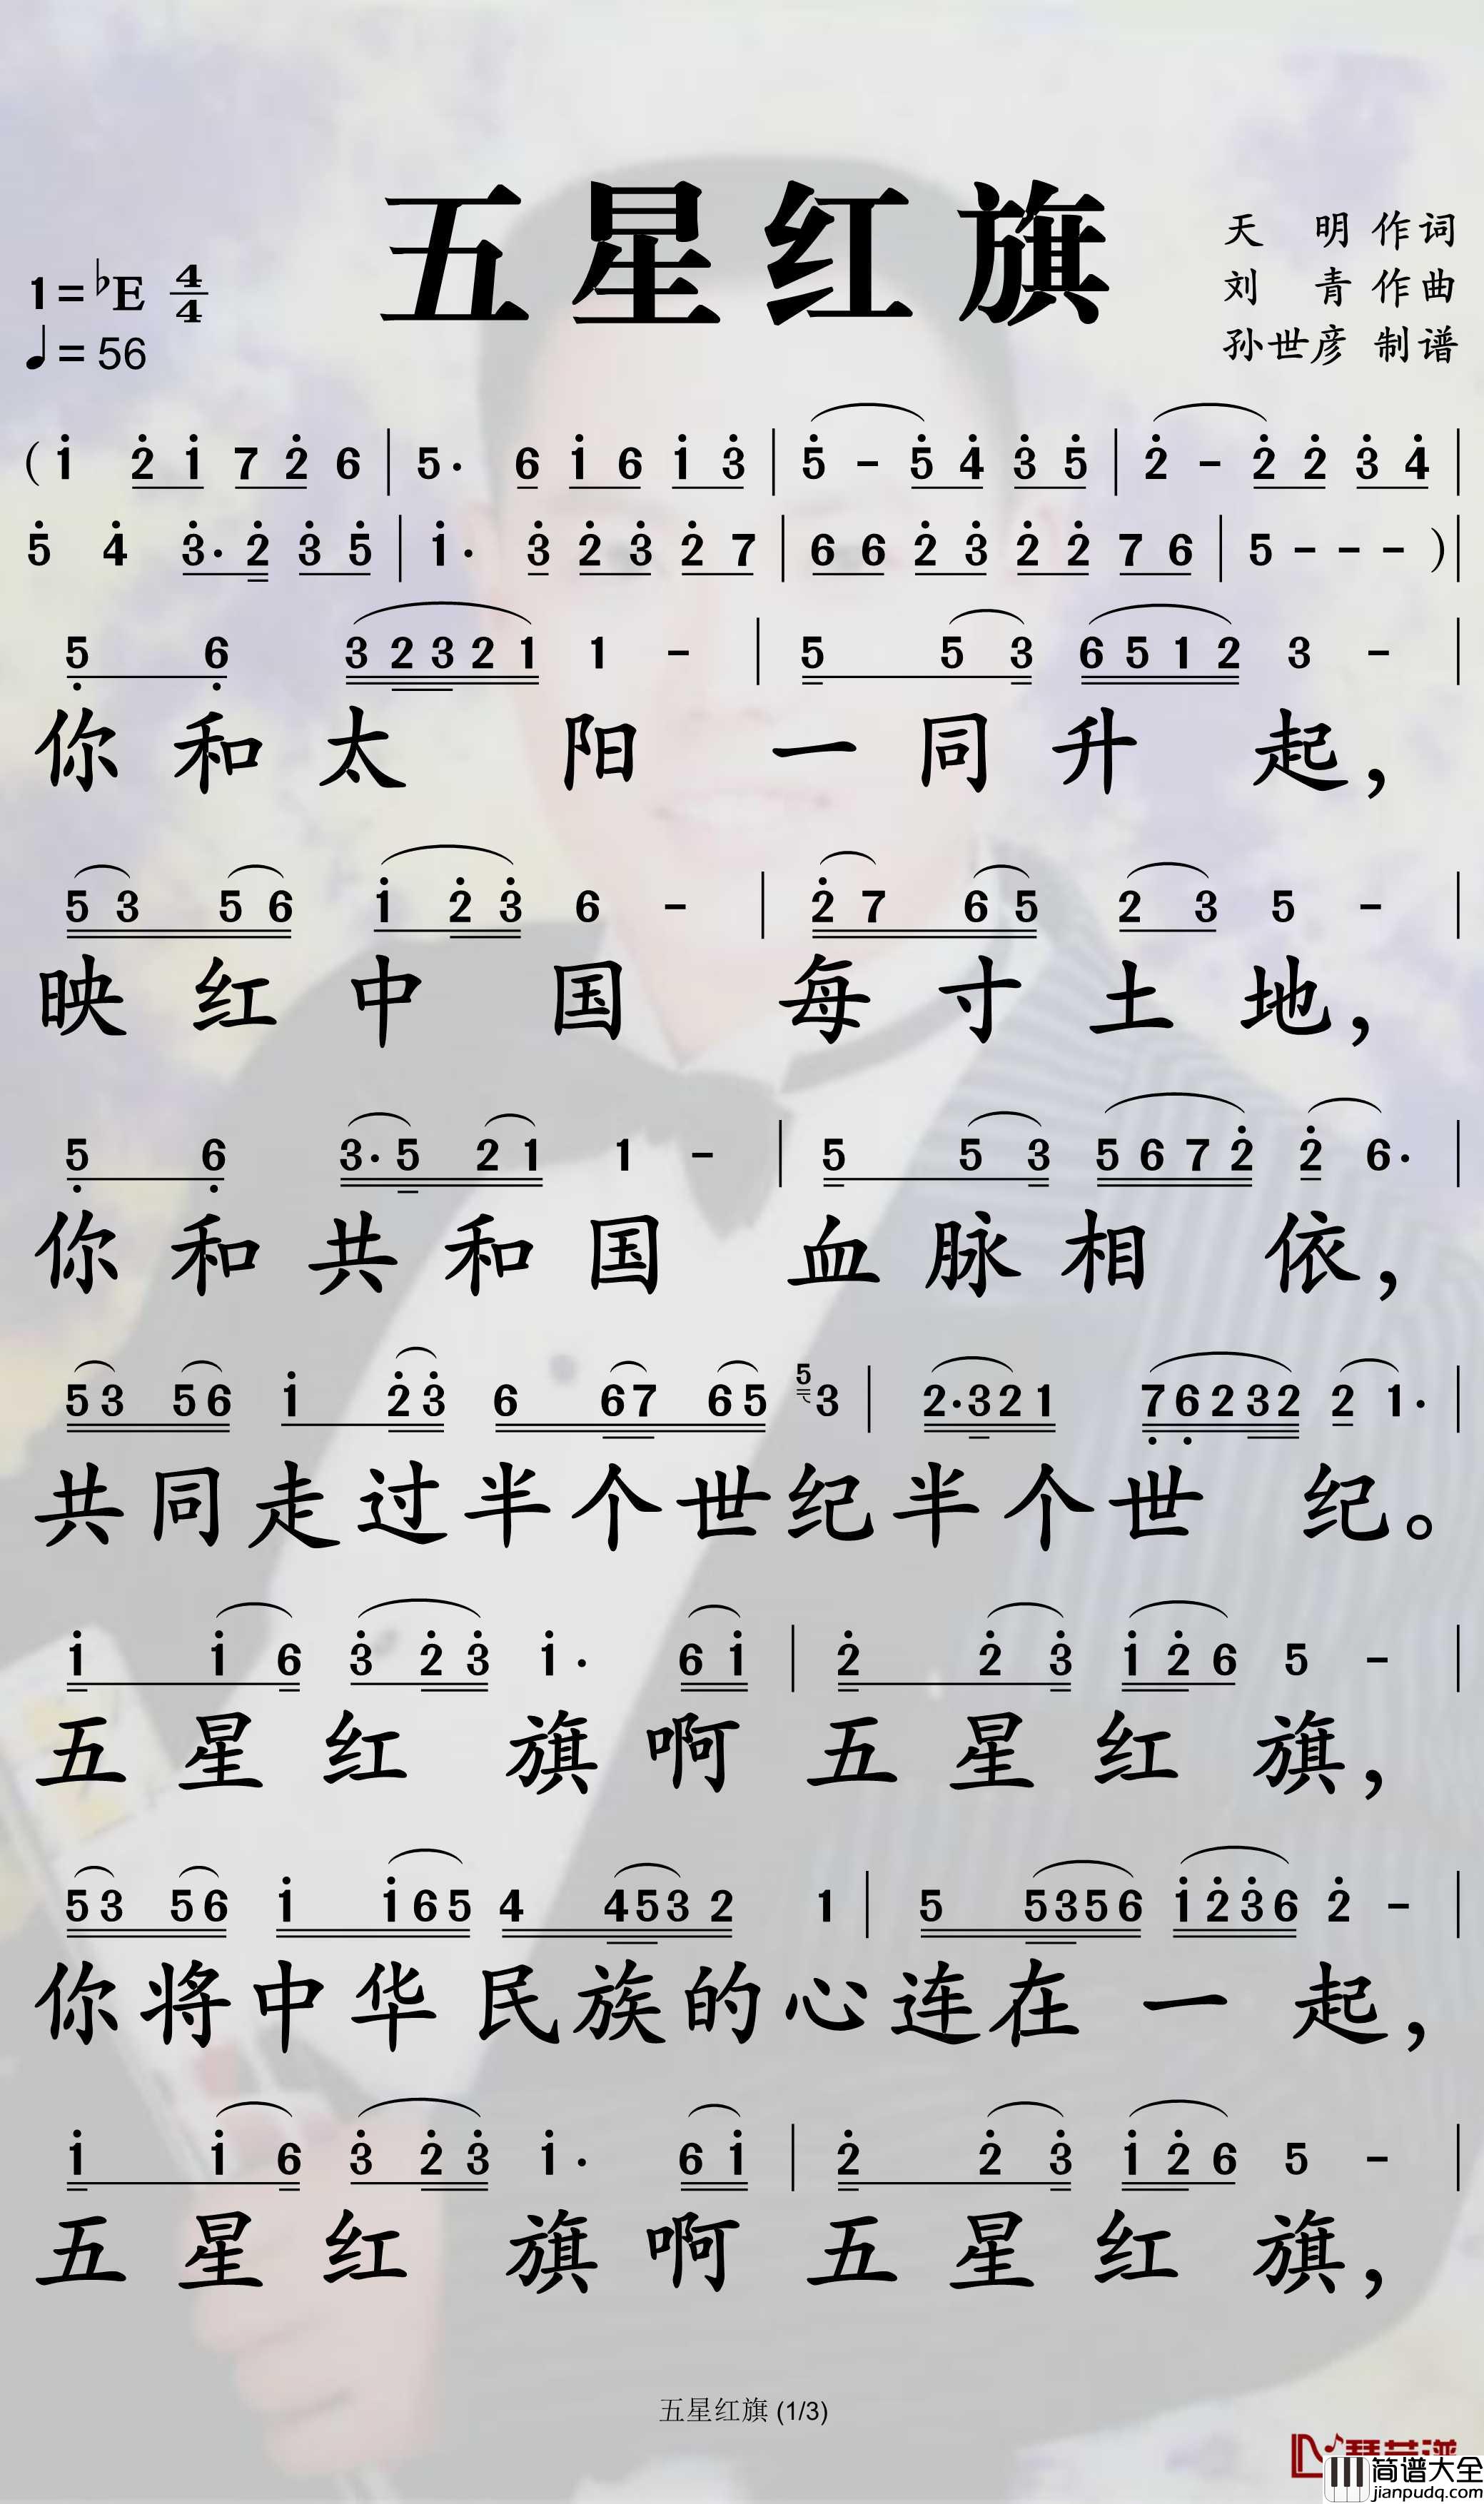 五星红旗
天 明 作词
刘 青 作曲
孙世彦 制谱
1=♭E 4/4
♩=56
( i̇ 2̇ i̇ 7 2̇ 6 | 5 · 6 i̇ 6 i̇ 3̇ | 5̇ - 5̇ 4̇ 3̇ 5̇ | 2̇ - 2̇ 2̇ 3̇ 4̇ |
5̇ 4̇ 3̇ · 2̇ 3̇ 5̇ | i̇ · 3̇ 2̇ 3̇ 2̇ 7 | 6 6 2̇ 3̇ 2̇ 2̇ 7 6 | 5 - - - ) |
5̣ 6̣ 3 2 3 2 1 1 - | 5 5 3 6 5 1 2 3 - |
你和太 阳 一同升 起，
5 3 5 6 i̇ 2̇ 3̇ 6 - | 2̇ 7 6 5 2 3 5 - |
映红中 国 每寸土地，
5̣ 6̣ 3 · 5 2 1 1 - | 5 5 3 5 6 7 2̇ 2̇ 6 · |
你和共和国 血脉相 依，
5 3 5 6 i̇ 2̇ 3̇ 6 6 7 6 5 5 3 | 2 · 3 2 1 7̣ 6̣ 2 3 2 2 1 · |
共同走过半个世纪半个世 纪。
i̇ i̇ 6 3̇ 2̇ 3̇ i̇ · 6 i̇ | 2̇ 2̇ 3̇ i̇ 2̇ 6 5 - |
五星红 旗啊 五星红 旗，
5 3 5 6 i̇ i̇ 6 5 4 4 5 3 2 1 | 5 5 3 5 6 i̇ 2̇ 3̇ 6 2̇ - |
你将中华民族的心连在一 起，
i̇ i̇ 6 3̇ 2̇ 3̇ i̇ · 6 i̇ | 2̇ 2̇ 3̇ i̇ 2̇ 6 5 - |
五星红 旗啊 五星红 旗，
五星红旗 (1/3)
简谱大全
jianpudq.com